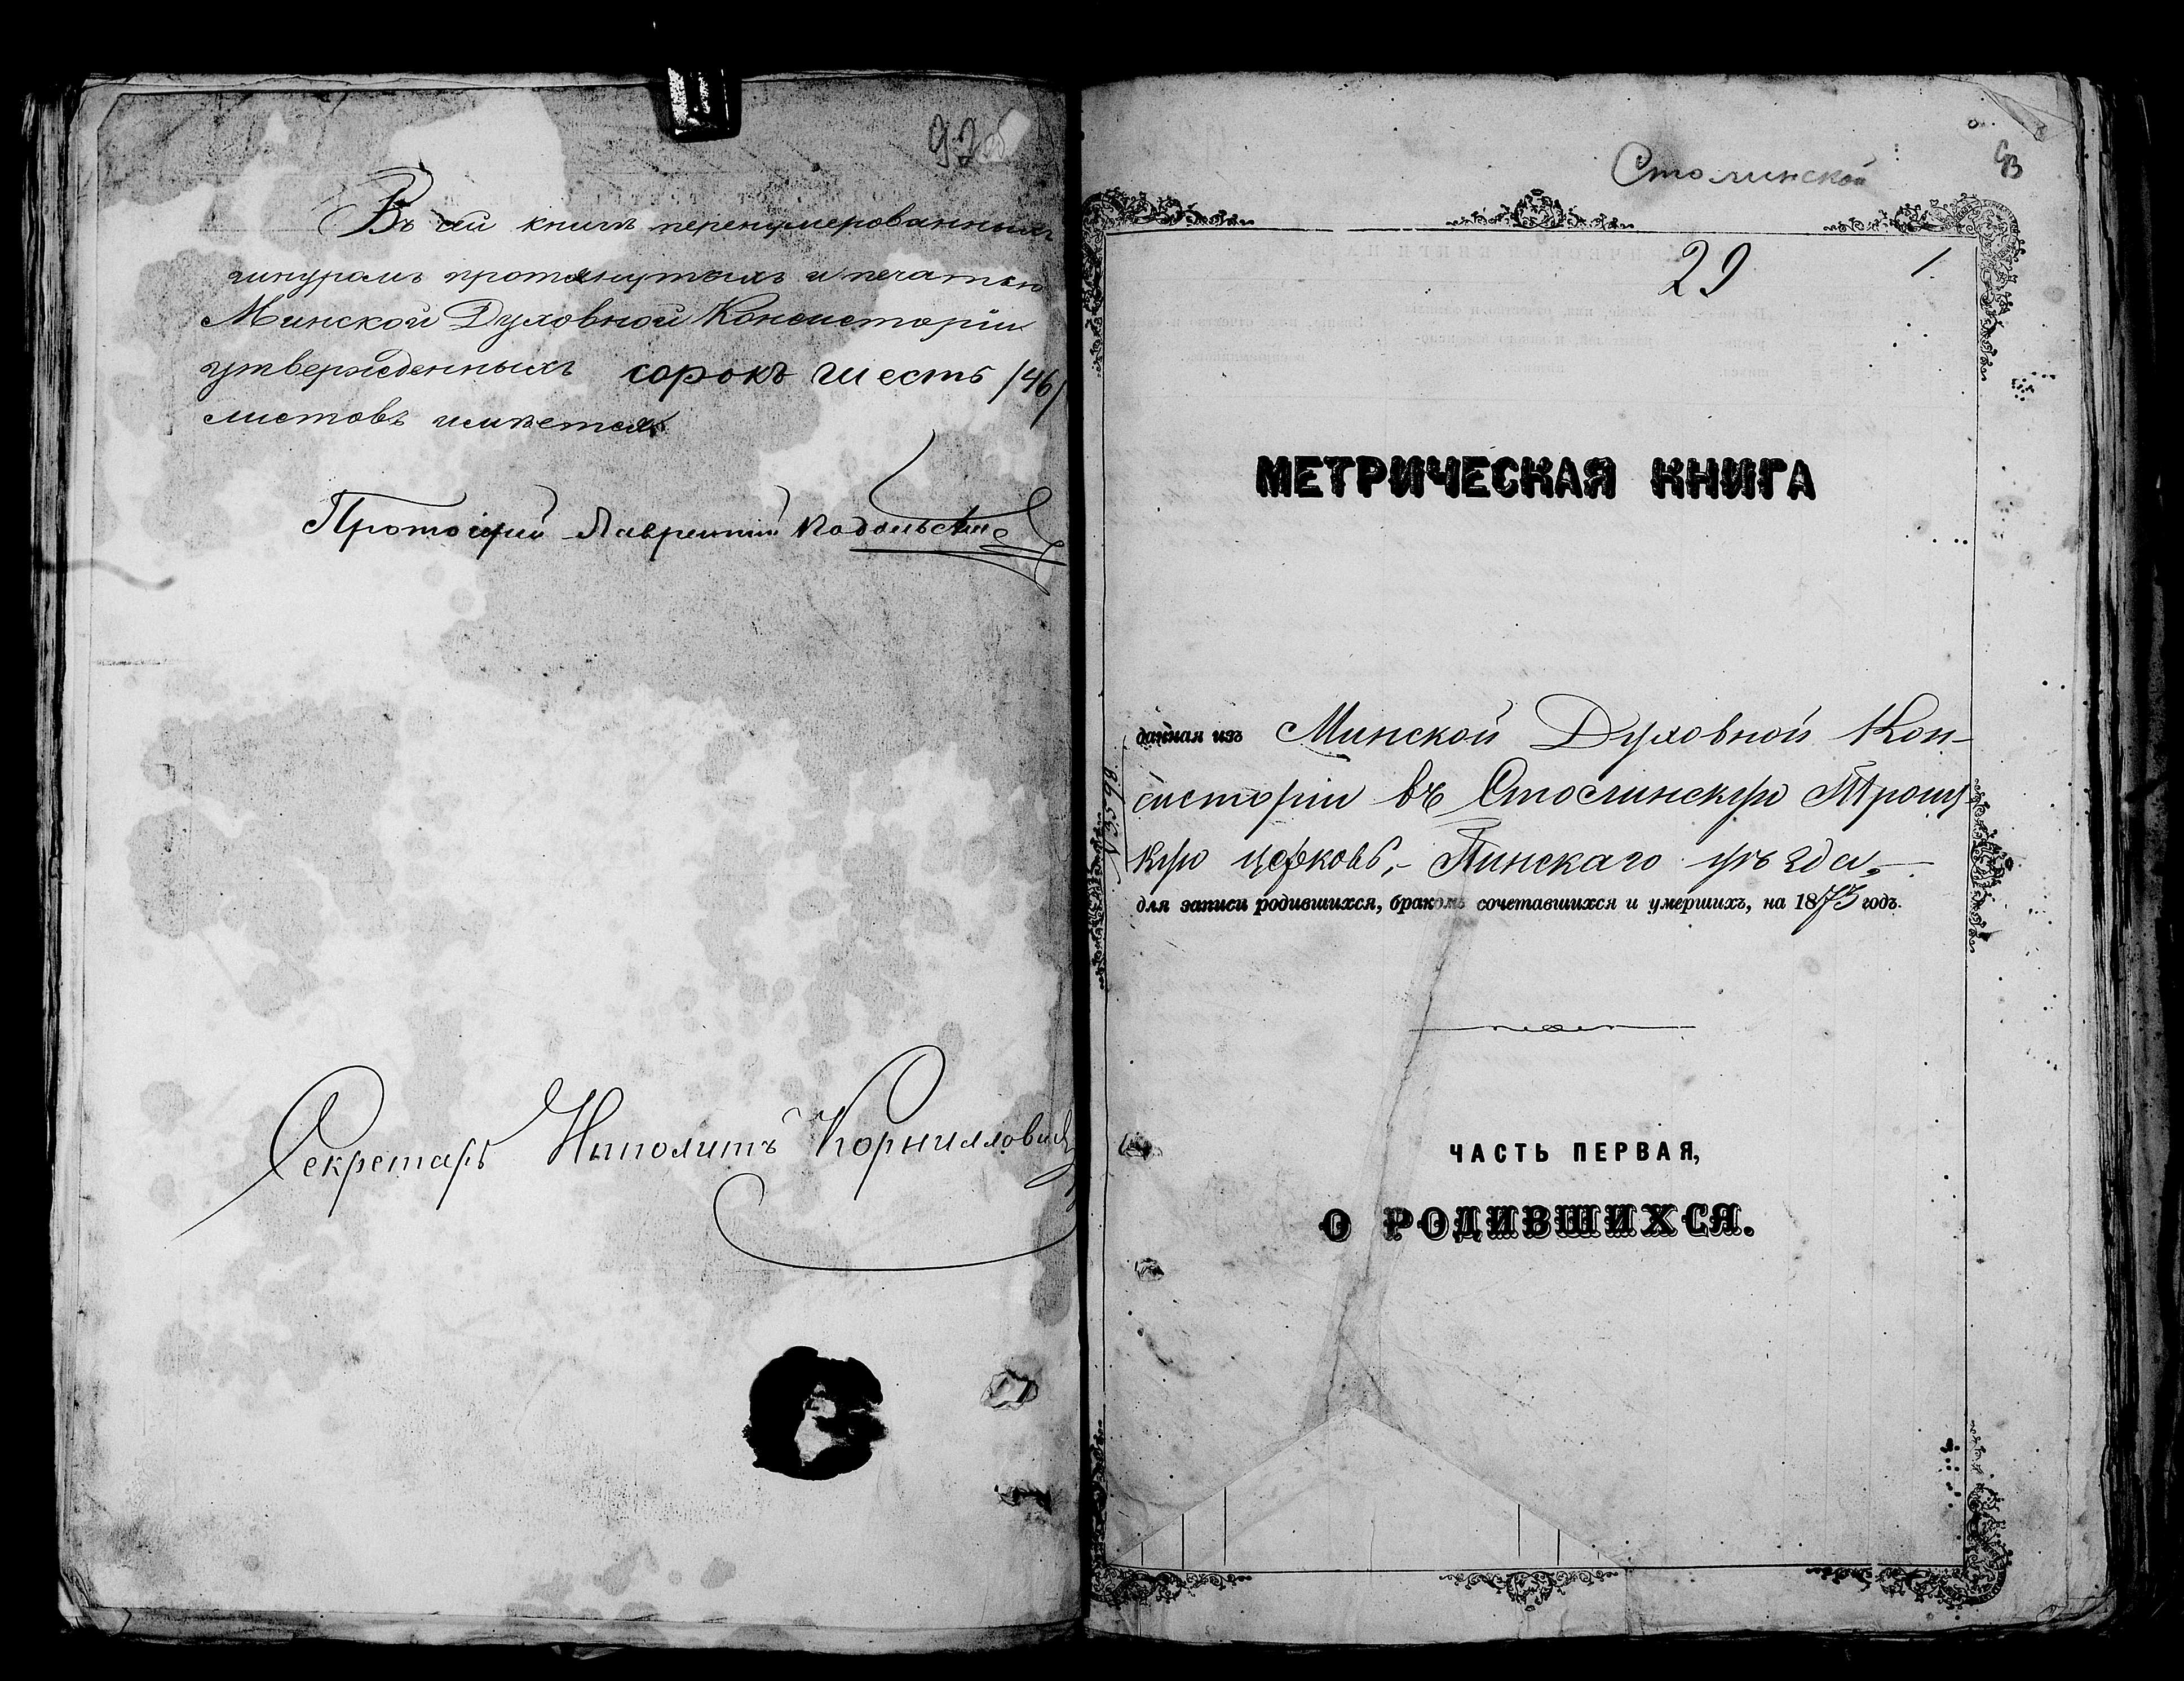 92 об
Въ сей книгѣ перенумерованныхъ
шнуромъ протянутыхъ и печатью
Минской Духовной Консисторіи
утвержденныхъ сорокъ шесть /46/
листовъ имѣется.
Протоіерей Лаврентій Подольскій
Секретарь Ипполитъ Корниллович
93
Столинской
29 1
МЕТРИЧЕСКАЯ КНИГА
данная изъ Минской Духовной Кон-
систоріи въ Столинскую Троиц
кую церковь,- Пинскаго уѣзда,
для записи родившихся, бракомъ сочетавшихся и умершихъ, на 1873 годъ.
№ 3598.
ЧАСТЬ ПЕРВАЯ,
О РОДИВШИХСЯ.